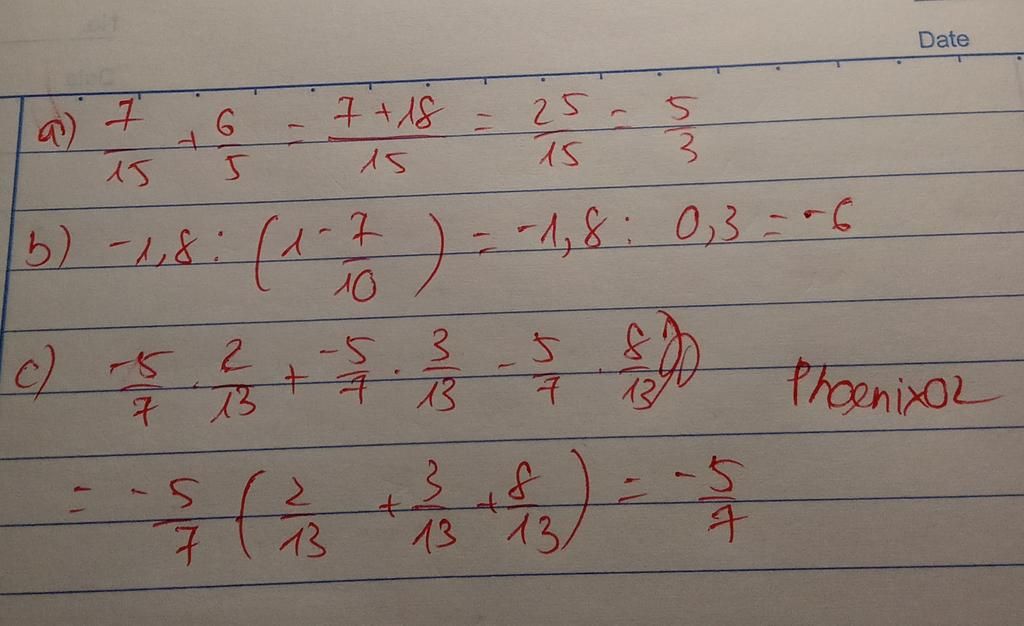 Date
a) 7/15 + 6/5 = 7+18/15 = 25/15 = 5/3
b) -1,8 : (1 - 7/10) = -1,8 : 0,3 = -6
c) -5/7 . 2/13 + -5/7 . 3/13 - 5/7 . 8/13
Phoenix02
= -5/7 (2/13 + 3/13 + 8/13) = -5/7